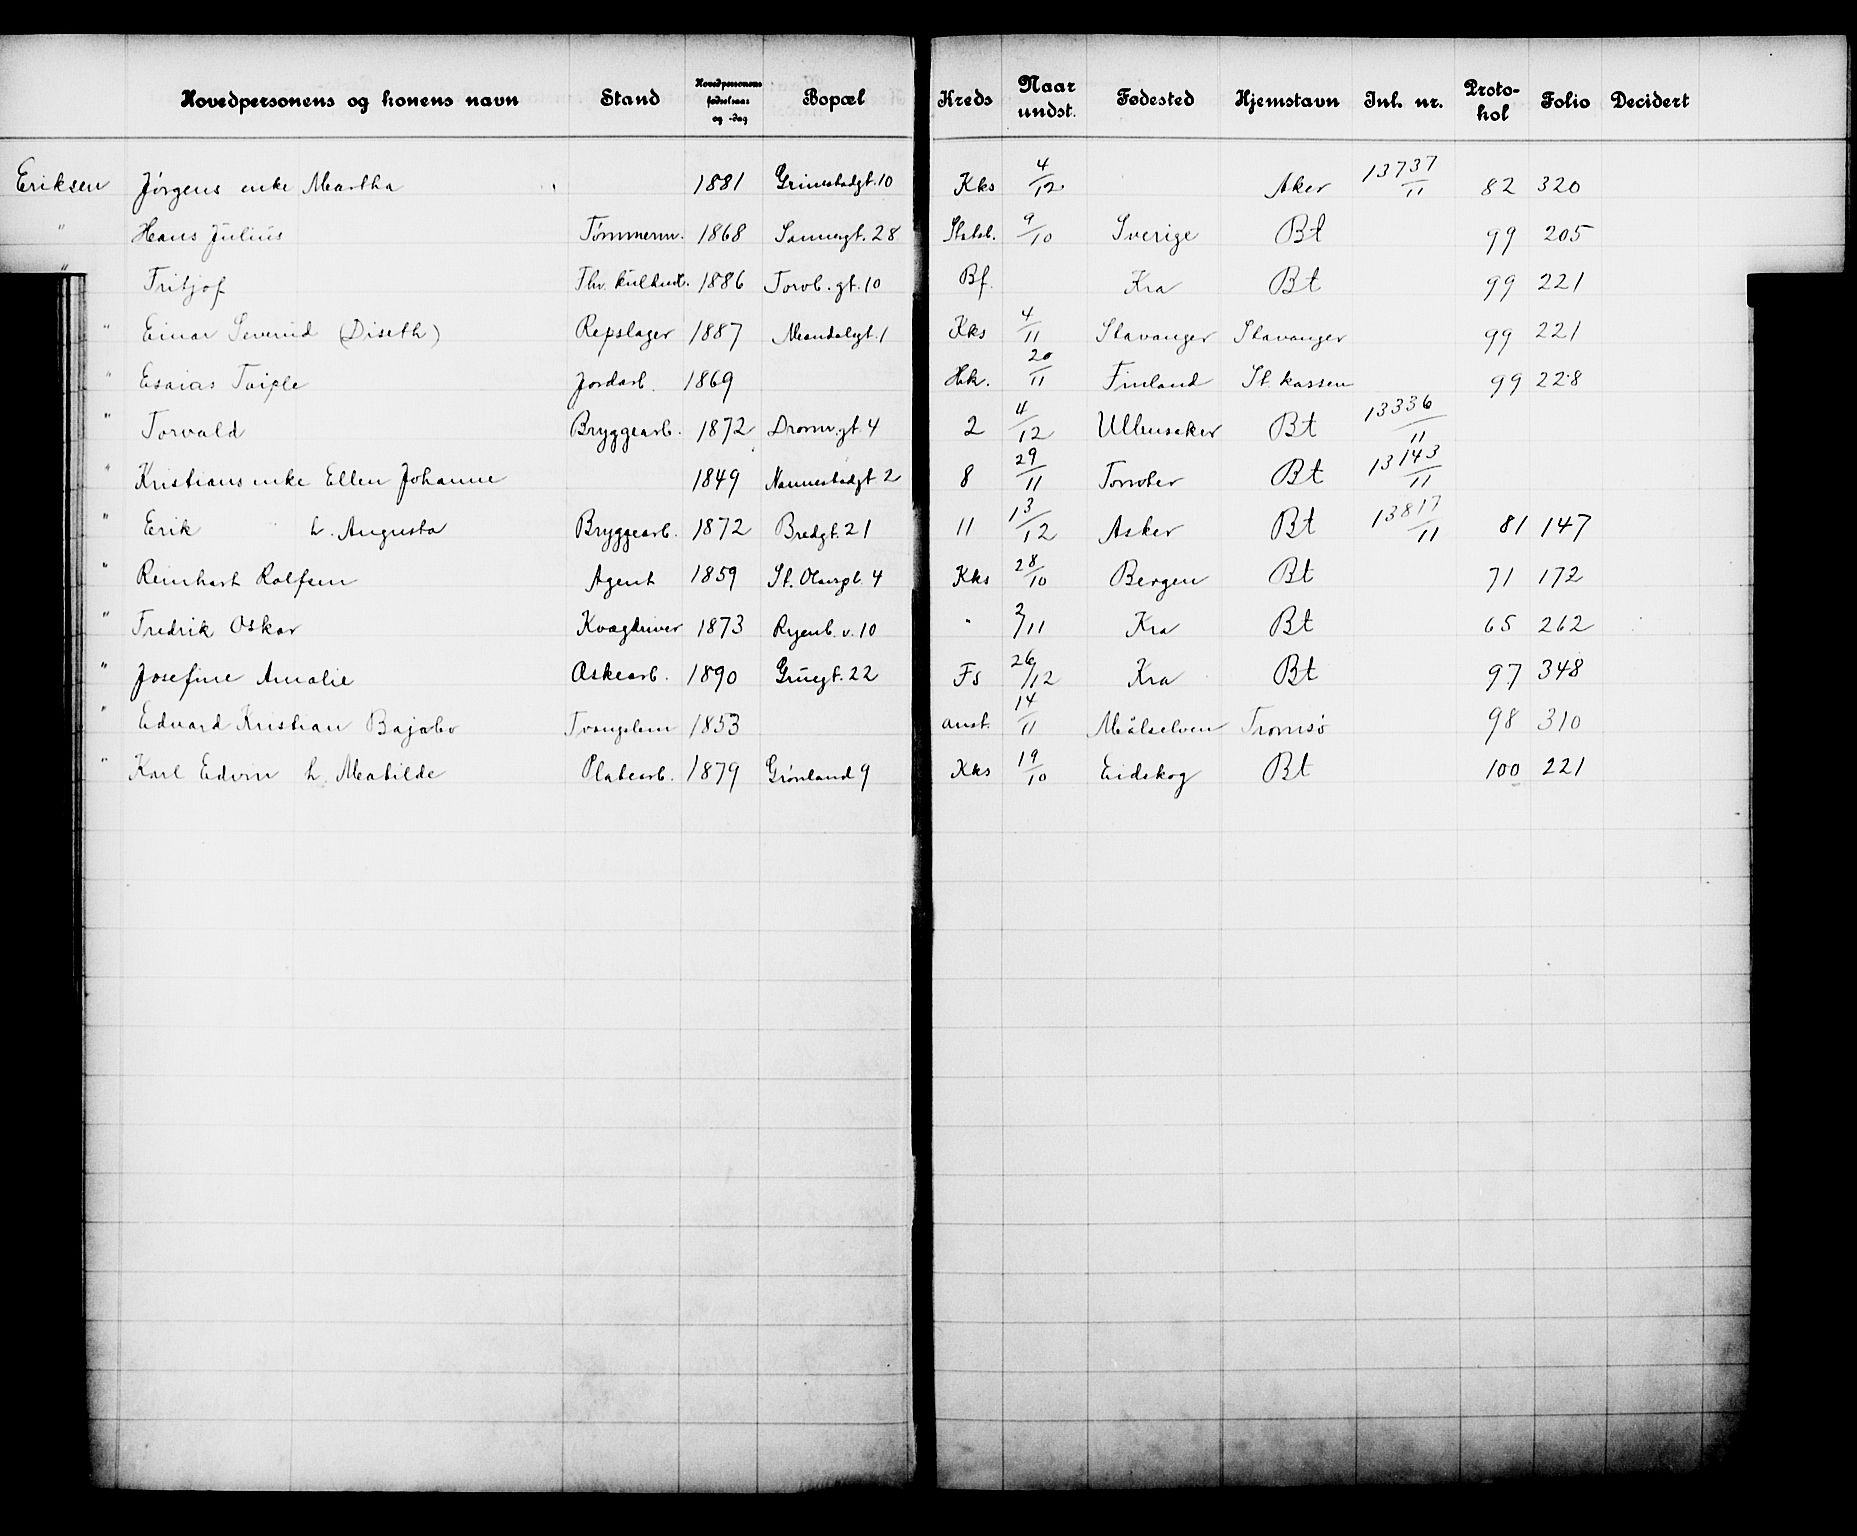 Hovedpersonens og konens navn Stand Hovedpersonens fødselsaar og -dag Bopæl Kreds Naar undst. Fødested Hjemstavn Inl. nr. Protokol Folio Decidert
Eriksen Jørgens enke Martha 1881 Grimestadgt. 10 Kks 4/12 Aker 13737/11 82 320
" Hans Julius Tømmerm. 1868 Sannergt. 28 9/10 Sverige Bt 99 205
" Fritjof 1886 Torvb.gt. 10 Bf. Kra Bt 99 221
" Einar Severid (Diseth) Repslager 1887 Mandalsgt. 1 Kks 4/11 Stavanger Stavanger 99 221
" Esaias Jordarb. 1869 Hk. 20/11 Finland St. kassen 99 228
" Torvald Bryggearb. 1872 Dramm.gt. 4 2 4/12 Ullensaker Bt 13336/11
" Kristians enke Ellen Johanne 1849 Nannestadgt. 2 8 29/11 Bt 13143/11
" Erik h. Augusta Bryggearb. 1872 Bredgt. 21 11 13/12 Asker Bt 13817/11 81 147
" Reinhart Rolfsen Agent 1859 St. Olavsgt. 4 Kks 28/10 Bergen Bt 71 172
" Fredrik Oskar Kvægdriver 1873 Ryenb.v. 10 " 2/11 Kra Bt 65 262
" Josefine Amalie Askearb. 1890 Gruegt. 22 Fs 26/12 Kra Bt 97 348
" Edvard Kristian Tvangslem 1853 anst. 14/11 Målselven Tromsø 98 310
" Karl Edvin h. Matilde Platearb. 1879 Grønland 9 Kks 19/10 Eidskog Bt 100 221